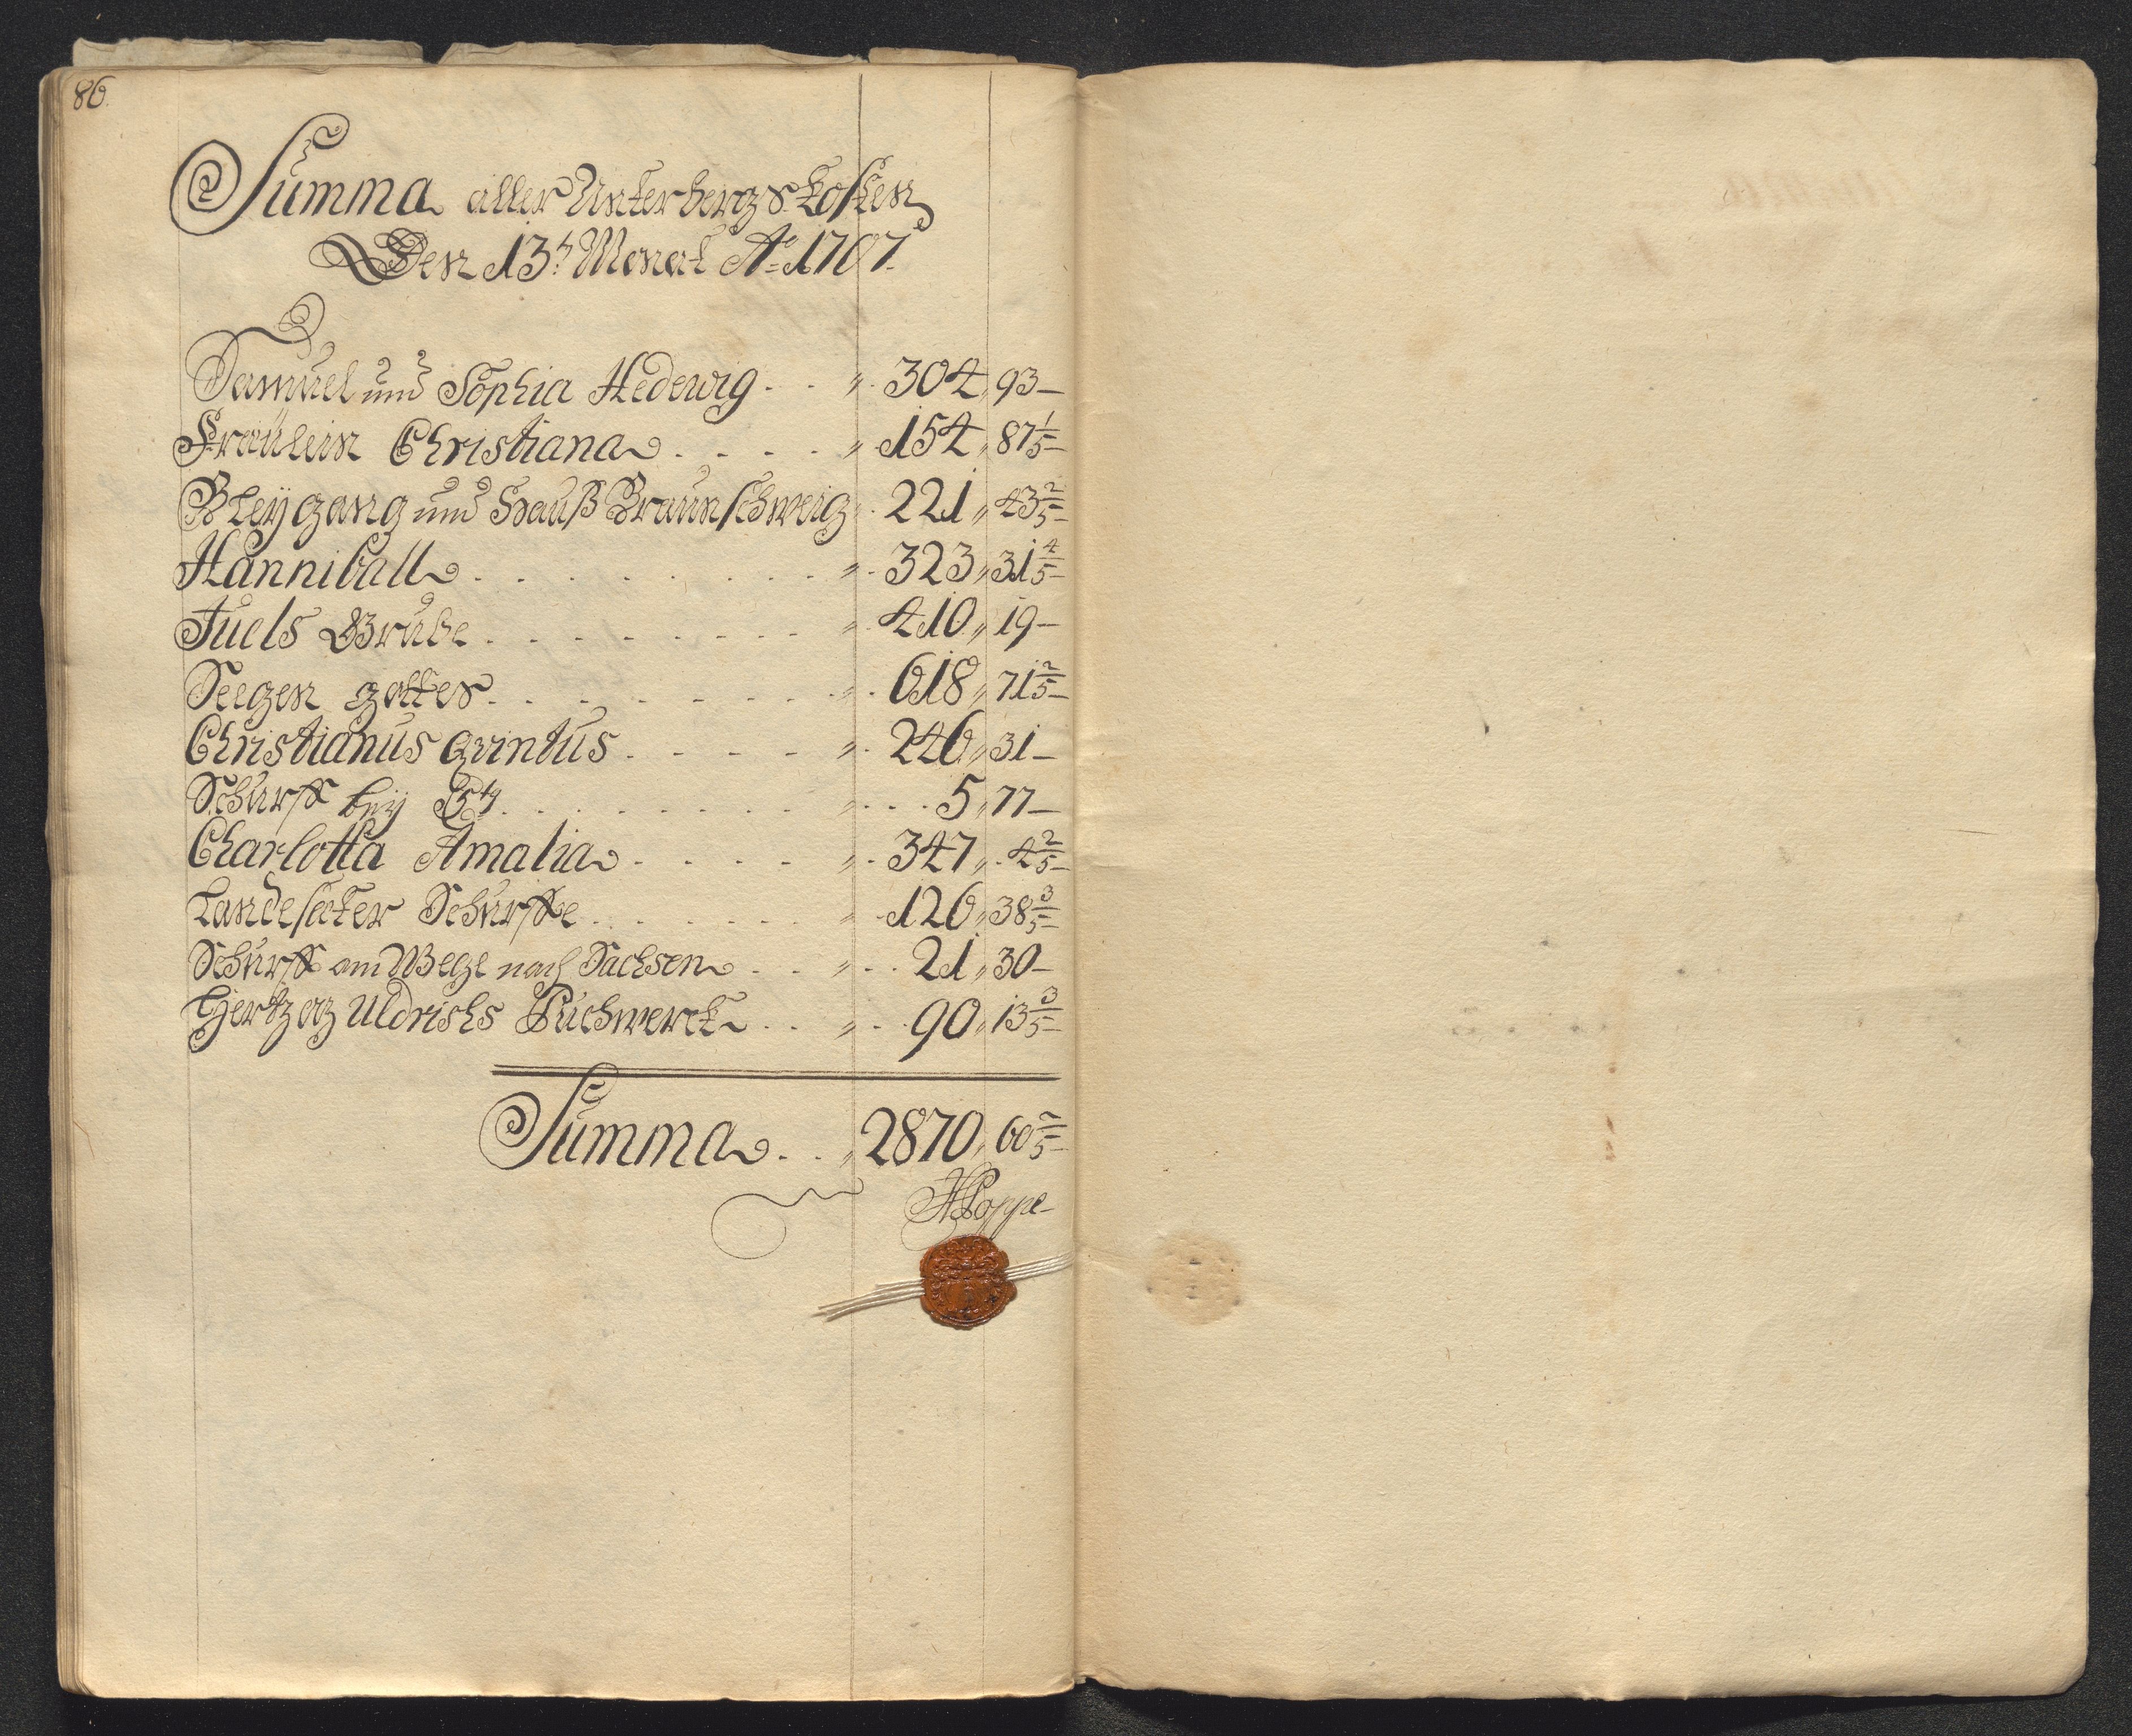 86.
Summa aller Unterbergs Kosten
Den 13t. Monat Ao. 1707.
Samuel und Sophia Hedewig . . „ . 304 „ 93 –
Fräulein Christiana . . . . „ 154 „ 87 1/5 –
Bleygang und Hauß Braunschweig „ . 221 „ 43 2/5 –
Hanniball . . . . . . . . „ . 323 „ 31 4/5 –
Juels Grube . . . . . . . „ . 410 „ 19 –
Seegen gottes . . . . . . . „ . 618 „ 71 2/5 –
Christianus qvintus . . . . „ . 246 „ 31 –
Schurff bey . . . . . . . „ . . . 5 „ 77 –
Charlotta Amalia . . . . „ . 347 „ . 4 2/5 –
Landesecter Schurffe . . . . . „ . 126 „ 38 3/5 –
Schurff am Wege nach Sachsen . . „ . . 21 „ 30 –
Hertzog Uldrichs Puchwerck . . „ . . 90 „ 13 3/5 –
Summa . . „ 2870 „ 60 2/5 –
HPoppe